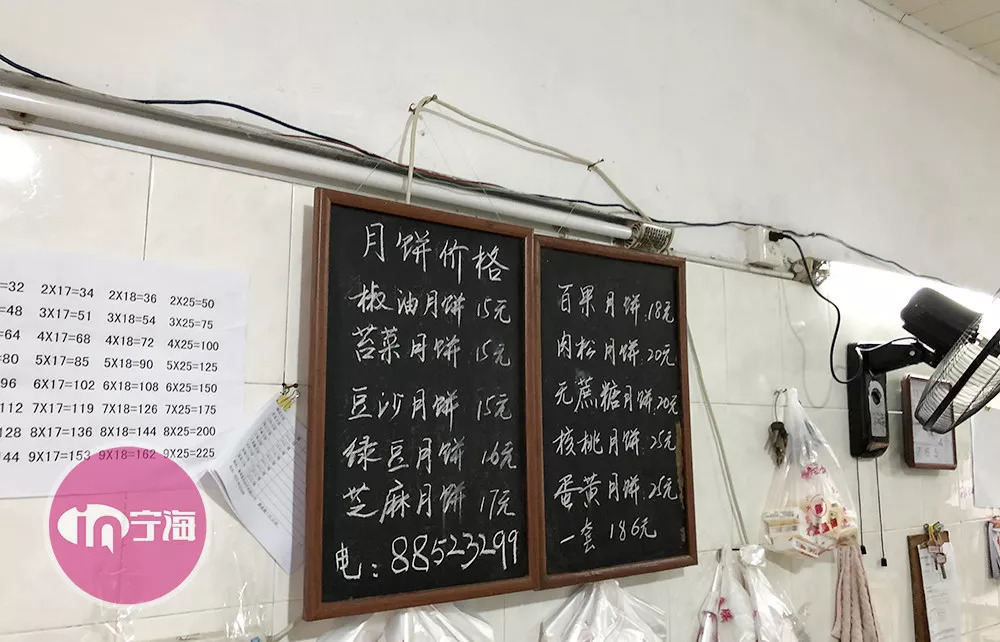 =32 2X17=34 2X18=36 2X25=50
=48 3X17=51 3X18=54 3X25=75
=64 4X17=68 4X18=72 4X25=100
=80 5X17=85 5X18=90 5X25=125
96 6X17=102 6X18=108 6X25=150
112 7X17=119 7X18=126 7X25=175
128 8X17=136 8X18=144 8X25=200
144 9X17=153 9X18=162 9X25=225
月饼价格
椒油月饼 15元
苔菜月饼 15元
豆沙月饼 15元
绿豆月饼 16元
芝麻月饼 17元
电:88523299
百果月饼.18元
肉松月饼.20元
无蔗糖月饼.20元
核桃月饼.25元
蛋黄月饼.25元
一套 186元
in宁海